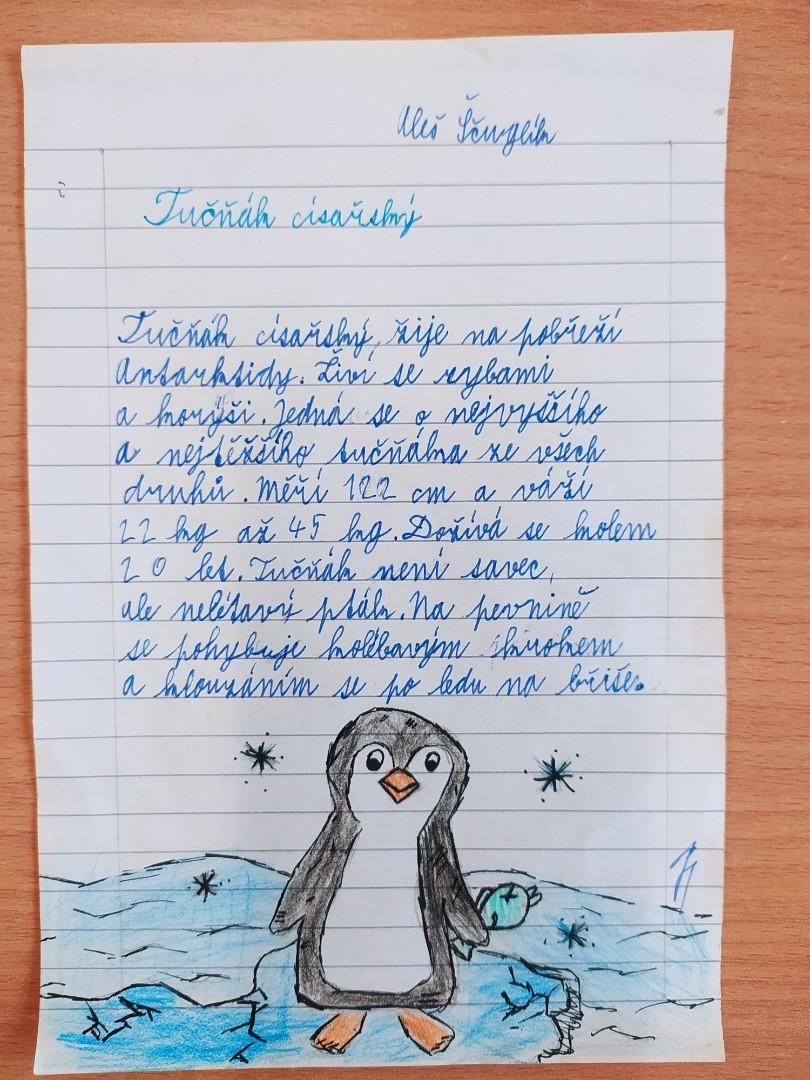 Aleš Ščuglík
Tučňák císařský
Tučňák císařský, žije na pobřeží
Antarktidy. Živí se rybami
a korýši. Jedná se o nejvyššího
a nejtěžšího tučňáka ze všech
druhů. Měří 122 cm a váží
22 kg až 45 kg. Dožívá se kolem
20 let. Tučňák není savec,
ale nelétavý pták. Na pevnině
se pohybuje kolébavým krokem
a klouzáním se po ledu na břiše.